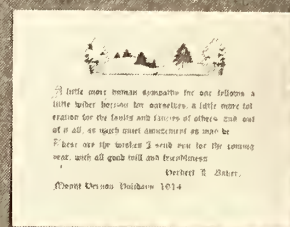 A little more human sympathy for our fellows a
little wider horizon for ourselves, a little more tol
eration for the faults and fancies of others and out
of it all, as much quiet amusement as may be
These are the wishes I send you for the coming
year, with all good will and friendliness
Herbert L. Baker,
Mount Vernon Holidays 1914